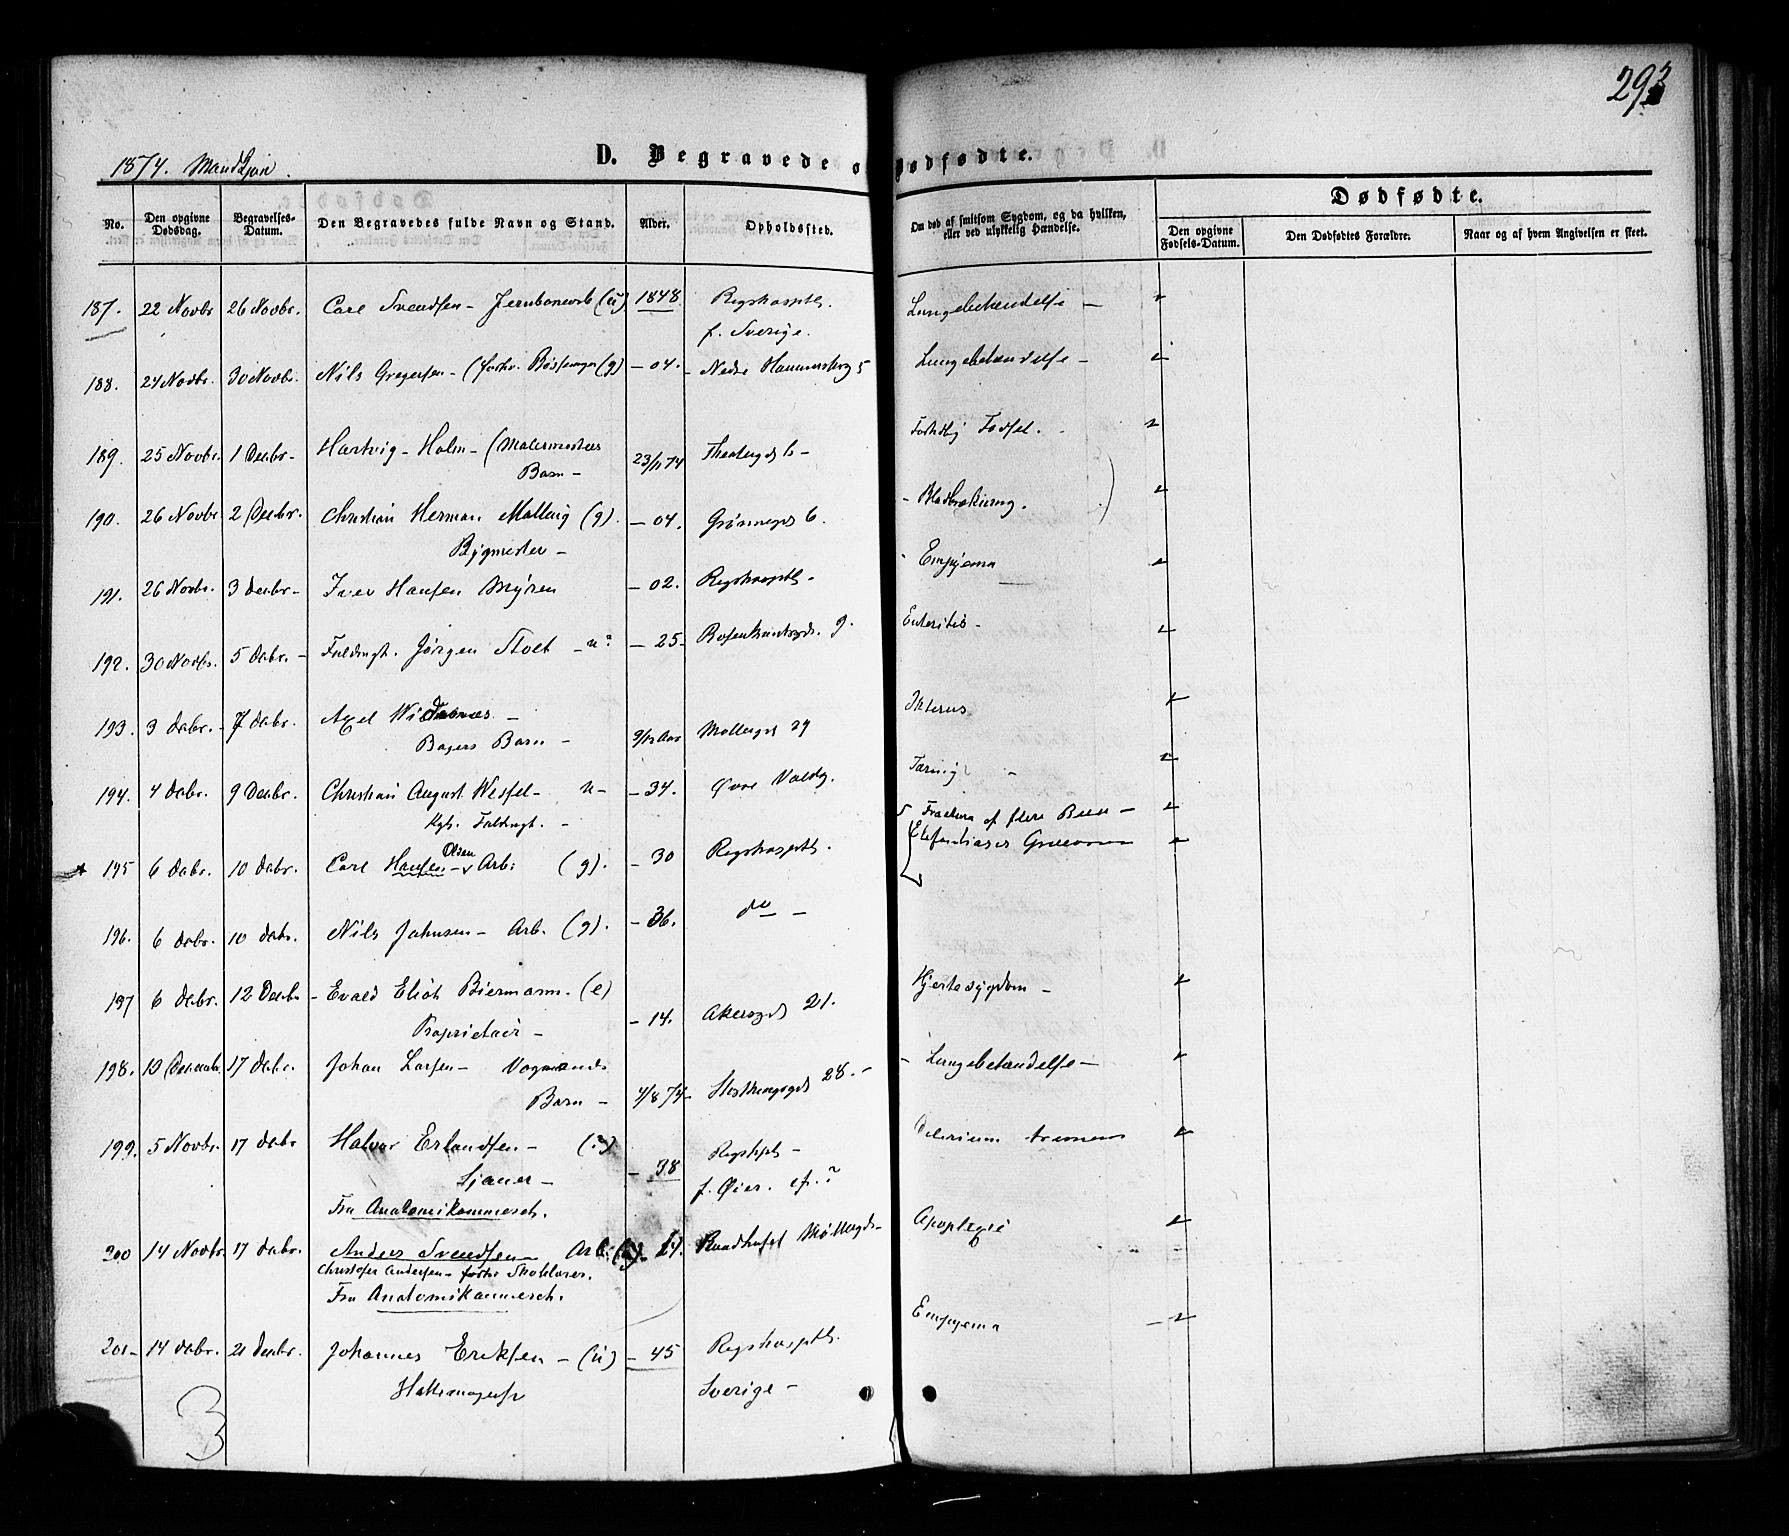 293
1874. Mandkjøn.
D. Begravede o
Dødfødte.
No. Den opgivne Dødsdag. Begravelses-Datum. Den Begravedes fulde Navn og Stand. Alder. Opholdssted. Om død af smitsom Sygdom, og da hvilken, eller ved ulykkelig Hændelse. Dødfødte.
Den opgivne Fødsels-Datum. Den Dødfødtes Forældre. Naar og af hvem Angivelsen er skeet.
187. 22 Novbr 26 Novbr. Carl Svendsen - (u) 1848 Rigshospth. Lungebetændelse -
f. Sverige.
188. 24 Novbr. 30 Novbr. Nils Gregersen - (g) - 04. Nedre Lungebetændelse -
189. 25 Novbr. 1 Decbr - Hartvig Holm - (Malermesters 23/11 74 Theatergd 6 - Fødsel.
Barn -
190. 26 Novbr 2 Decbr. Christian Herman Malling (g). - 04. Grønnegd 6.
Bygmester -
191. 26 Novbr. 3 Decbr - Iver Hansen Myren - 02. Rigshospth - Empyema
192. 30 Novbr. 5 Decbr. - Fuldmgt. Jørgen Stoet - u? - 25 - Rosenkrantzgd. 9. Enteritis -
193. 3 Decbr. - 7 Decbr. Axel -
Bagers Barn - 9/12 Aar Møllergd 29 Ikterus
194. 4 Decbr. 9 Decbr. Christian August Wessel - u - - 34. Øvre Voldg. Tæring -
Kgl. Fuldmgt. -
195 6 Decbr. 10 Decbr. Carl Hansen Olsen - Arb. (g). - 30 Rigshospth. Fractura af flere Been -
196. 6 Decbr. 10 Decbr. Nils Johnsen - Arb. (g). - 36. do - Elefantiasis Græcorum
197 6 Decbr. 12 Decbr - Evald Eliot Biermann. (e) - 14. Akersgd 21. Hjertesygdom -
Proprietair -
198. 10 Decembr. 17 Decbr. Johan Larsen - Vognmands 4/8 74 - 28. - - Lungebetændelse -
Barn -
199. 5 Novbr. 17 Decbr Halvor Erlandsen - (?) - 38 Rigshpt - Delirium tremens
Sjauer - f. Øier. ef. ?
Fra Anatomikammeret.
200 14 Novbr 17 Decbr. Anders Svendsen - Arb. Raadhuset Møllergd - Apoplexi
Christofer Andersen - forhv Skolelærer.
Fra Anatomikammeret.
201 - 14 Decbr. 21 Decbr. Johannes Eriksen - (u) - 45 Rigshospth. Empyema
Hattemagersv Sverige -
3